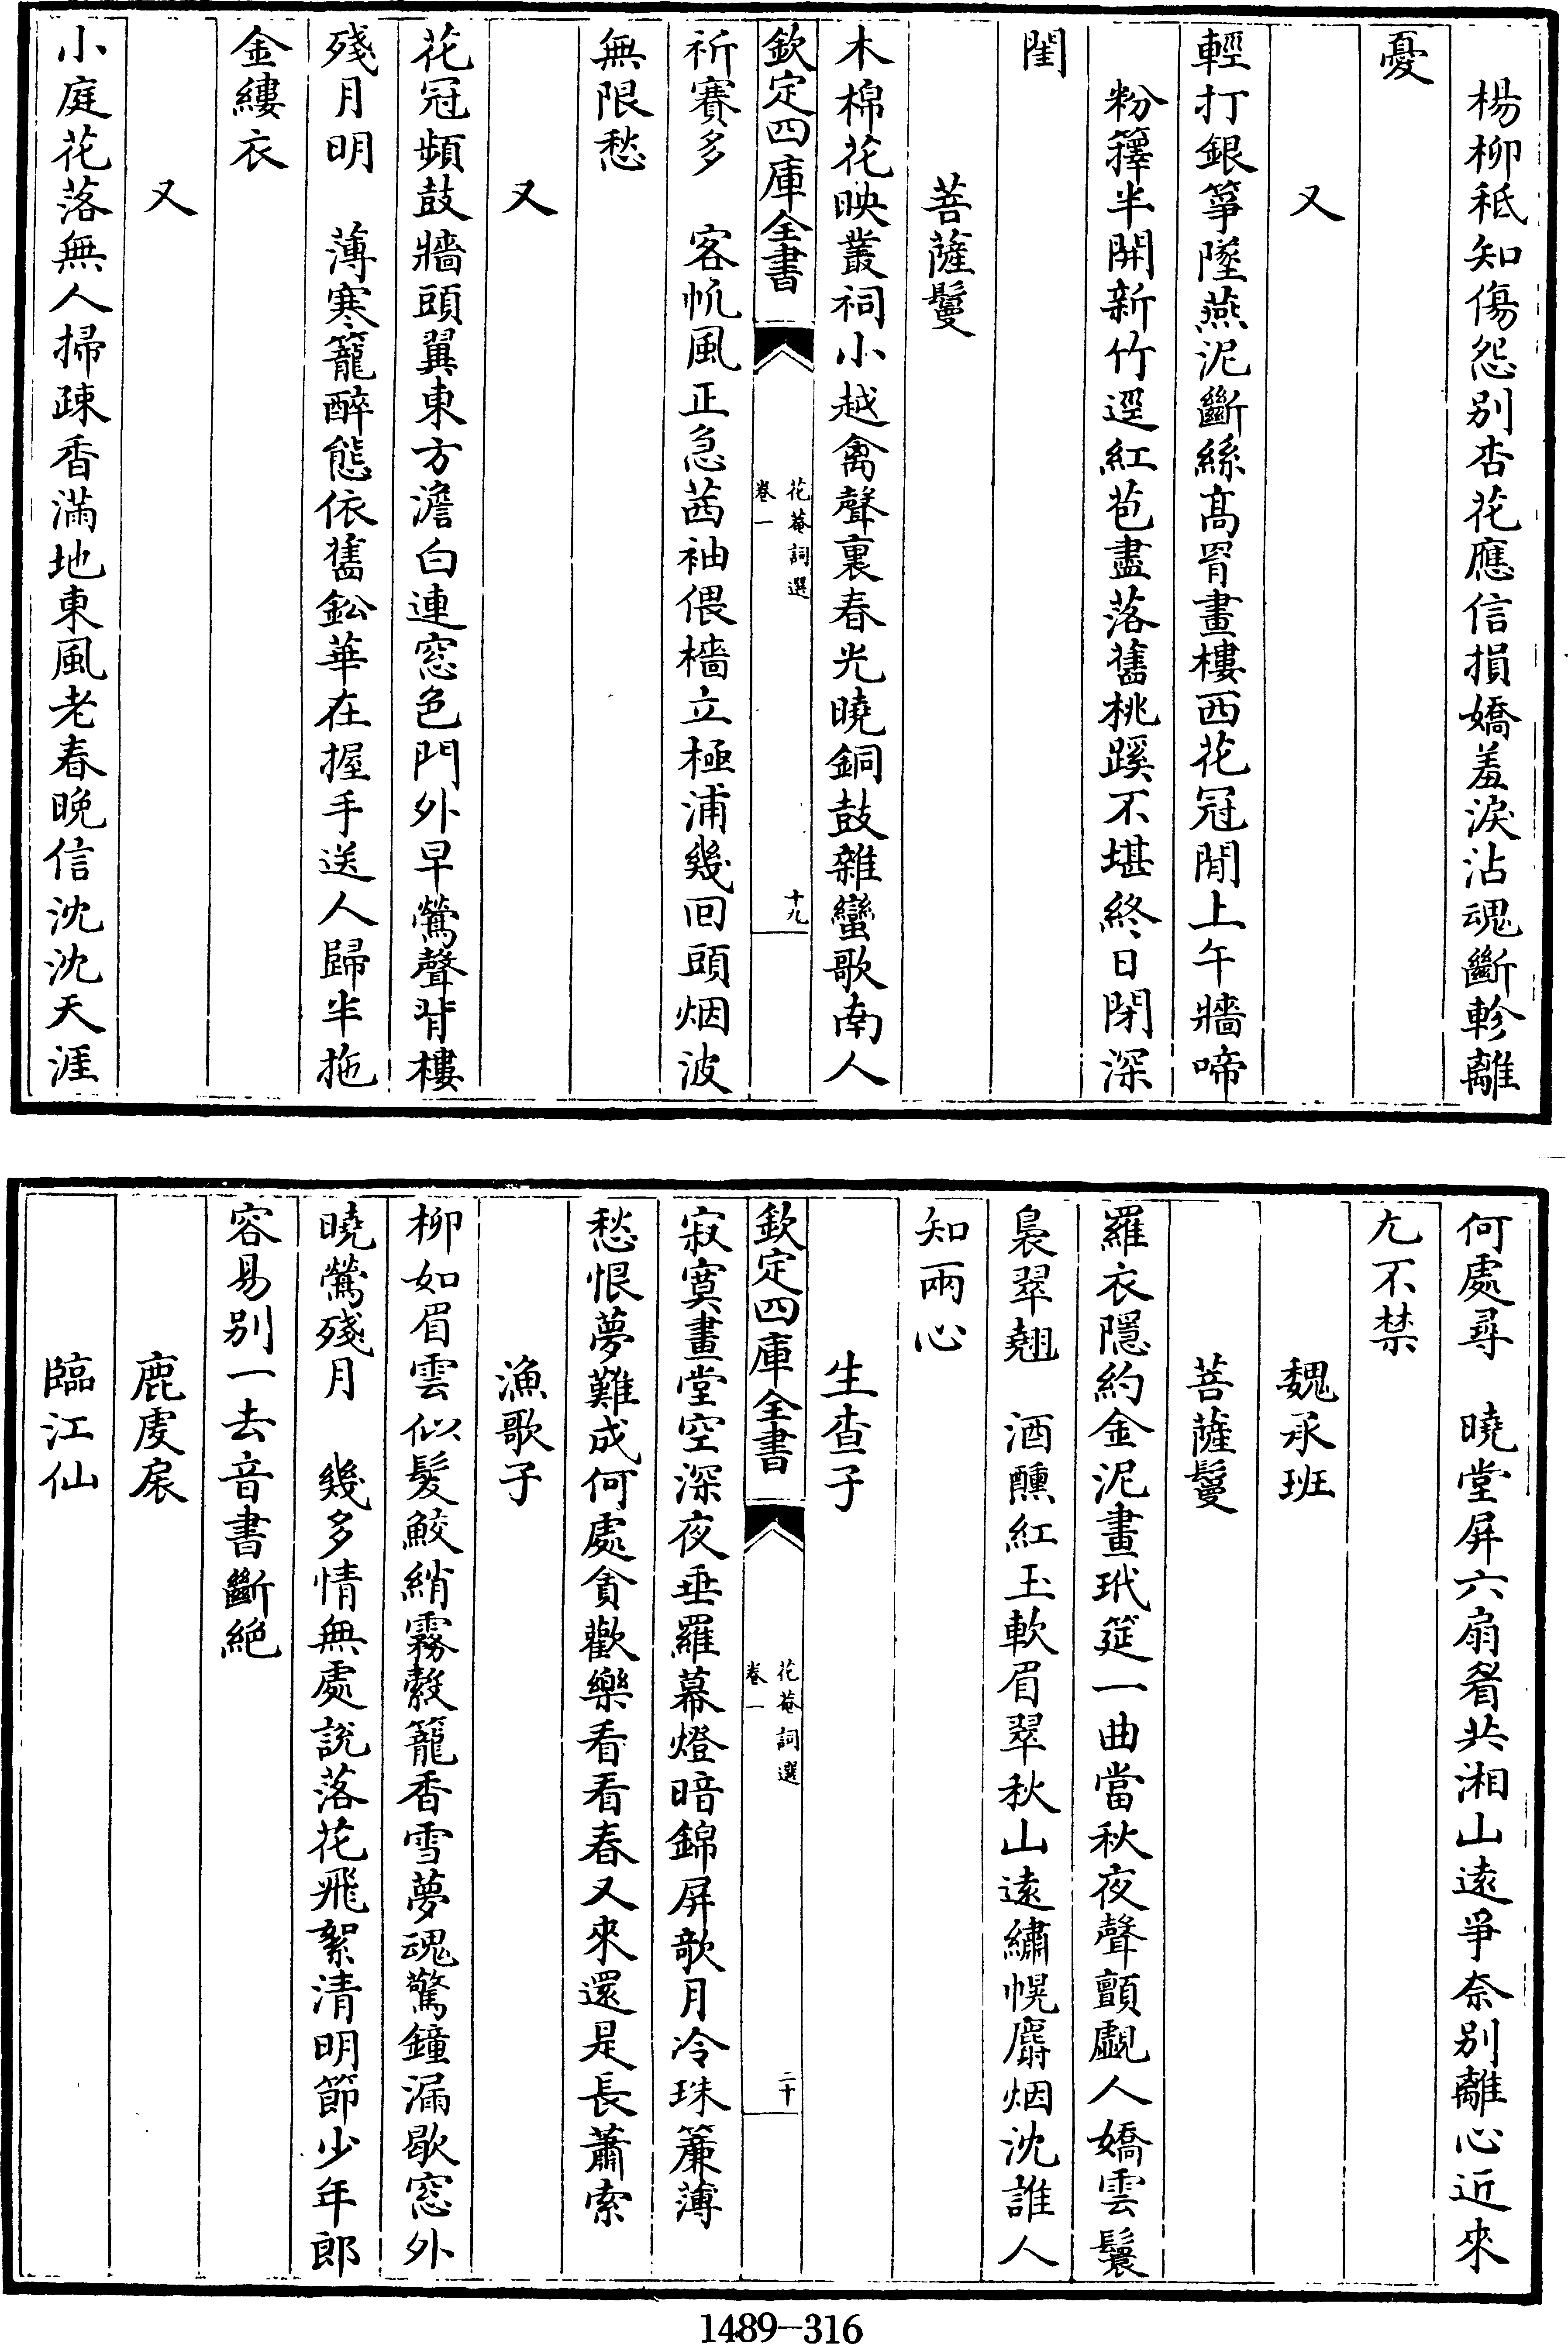 楊柳秪知傷怨别杏花應信損嬌羞淚沾魂斷軫離
憂
又
輕打銀箏墜燕泥斷絲髙罥畫樓西花冠閒上午牆啼
粉籜半開新竹逕紅苞盡落舊桃蹊不堪終日閉深
閨
菩薩鬘
木棉花映叢祠小越禽聲裏春光曉銅鼓雜蠻歌南人
欽定四庫全書
花菴詞選
卷一
十九
祈賽多　客帆風正急茜袖偎檣立極浦幾回頭烟波
無限愁
又
花冠頻鼓牆頭翼東方澹白連窓色門外早鶯聲背樓
殘月明　薄寒籠醉態依舊鈆華在握手送人歸半拖
金縷衣
又
小庭花落無人掃疎香滿地東風老春晚信沈沈天涯
何處尋　曉堂屏六扇眉共湘山遠爭奈别離心近來
尢不禁
魏承班
菩薩鬘
羅衣隱約金泥畫玳筵一曲當秋夜聲顫覷人嬌雲鬟
裊翠翹　酒醺紅玉軟眉翠秋山遠繡幌麝烟沈誰人
知兩心
生查子
欽定四庫全書
花菴詞選
卷一
二十
寂寞畫堂空深夜垂羅幕燈暗錦屏欹月冷珠簾薄
愁恨夢難成何處貪歡樂看看春又來還是長蕭索
漁歌子
柳如眉雲似髮鮫綃霧縠籠香雪夢魂驚鐘漏歇窓外
曉鶯殘月　幾多情無處說落花飛絮清明節少年郎
容易别一去音書斷絕
鹿虔扆
臨江仙
1489-316